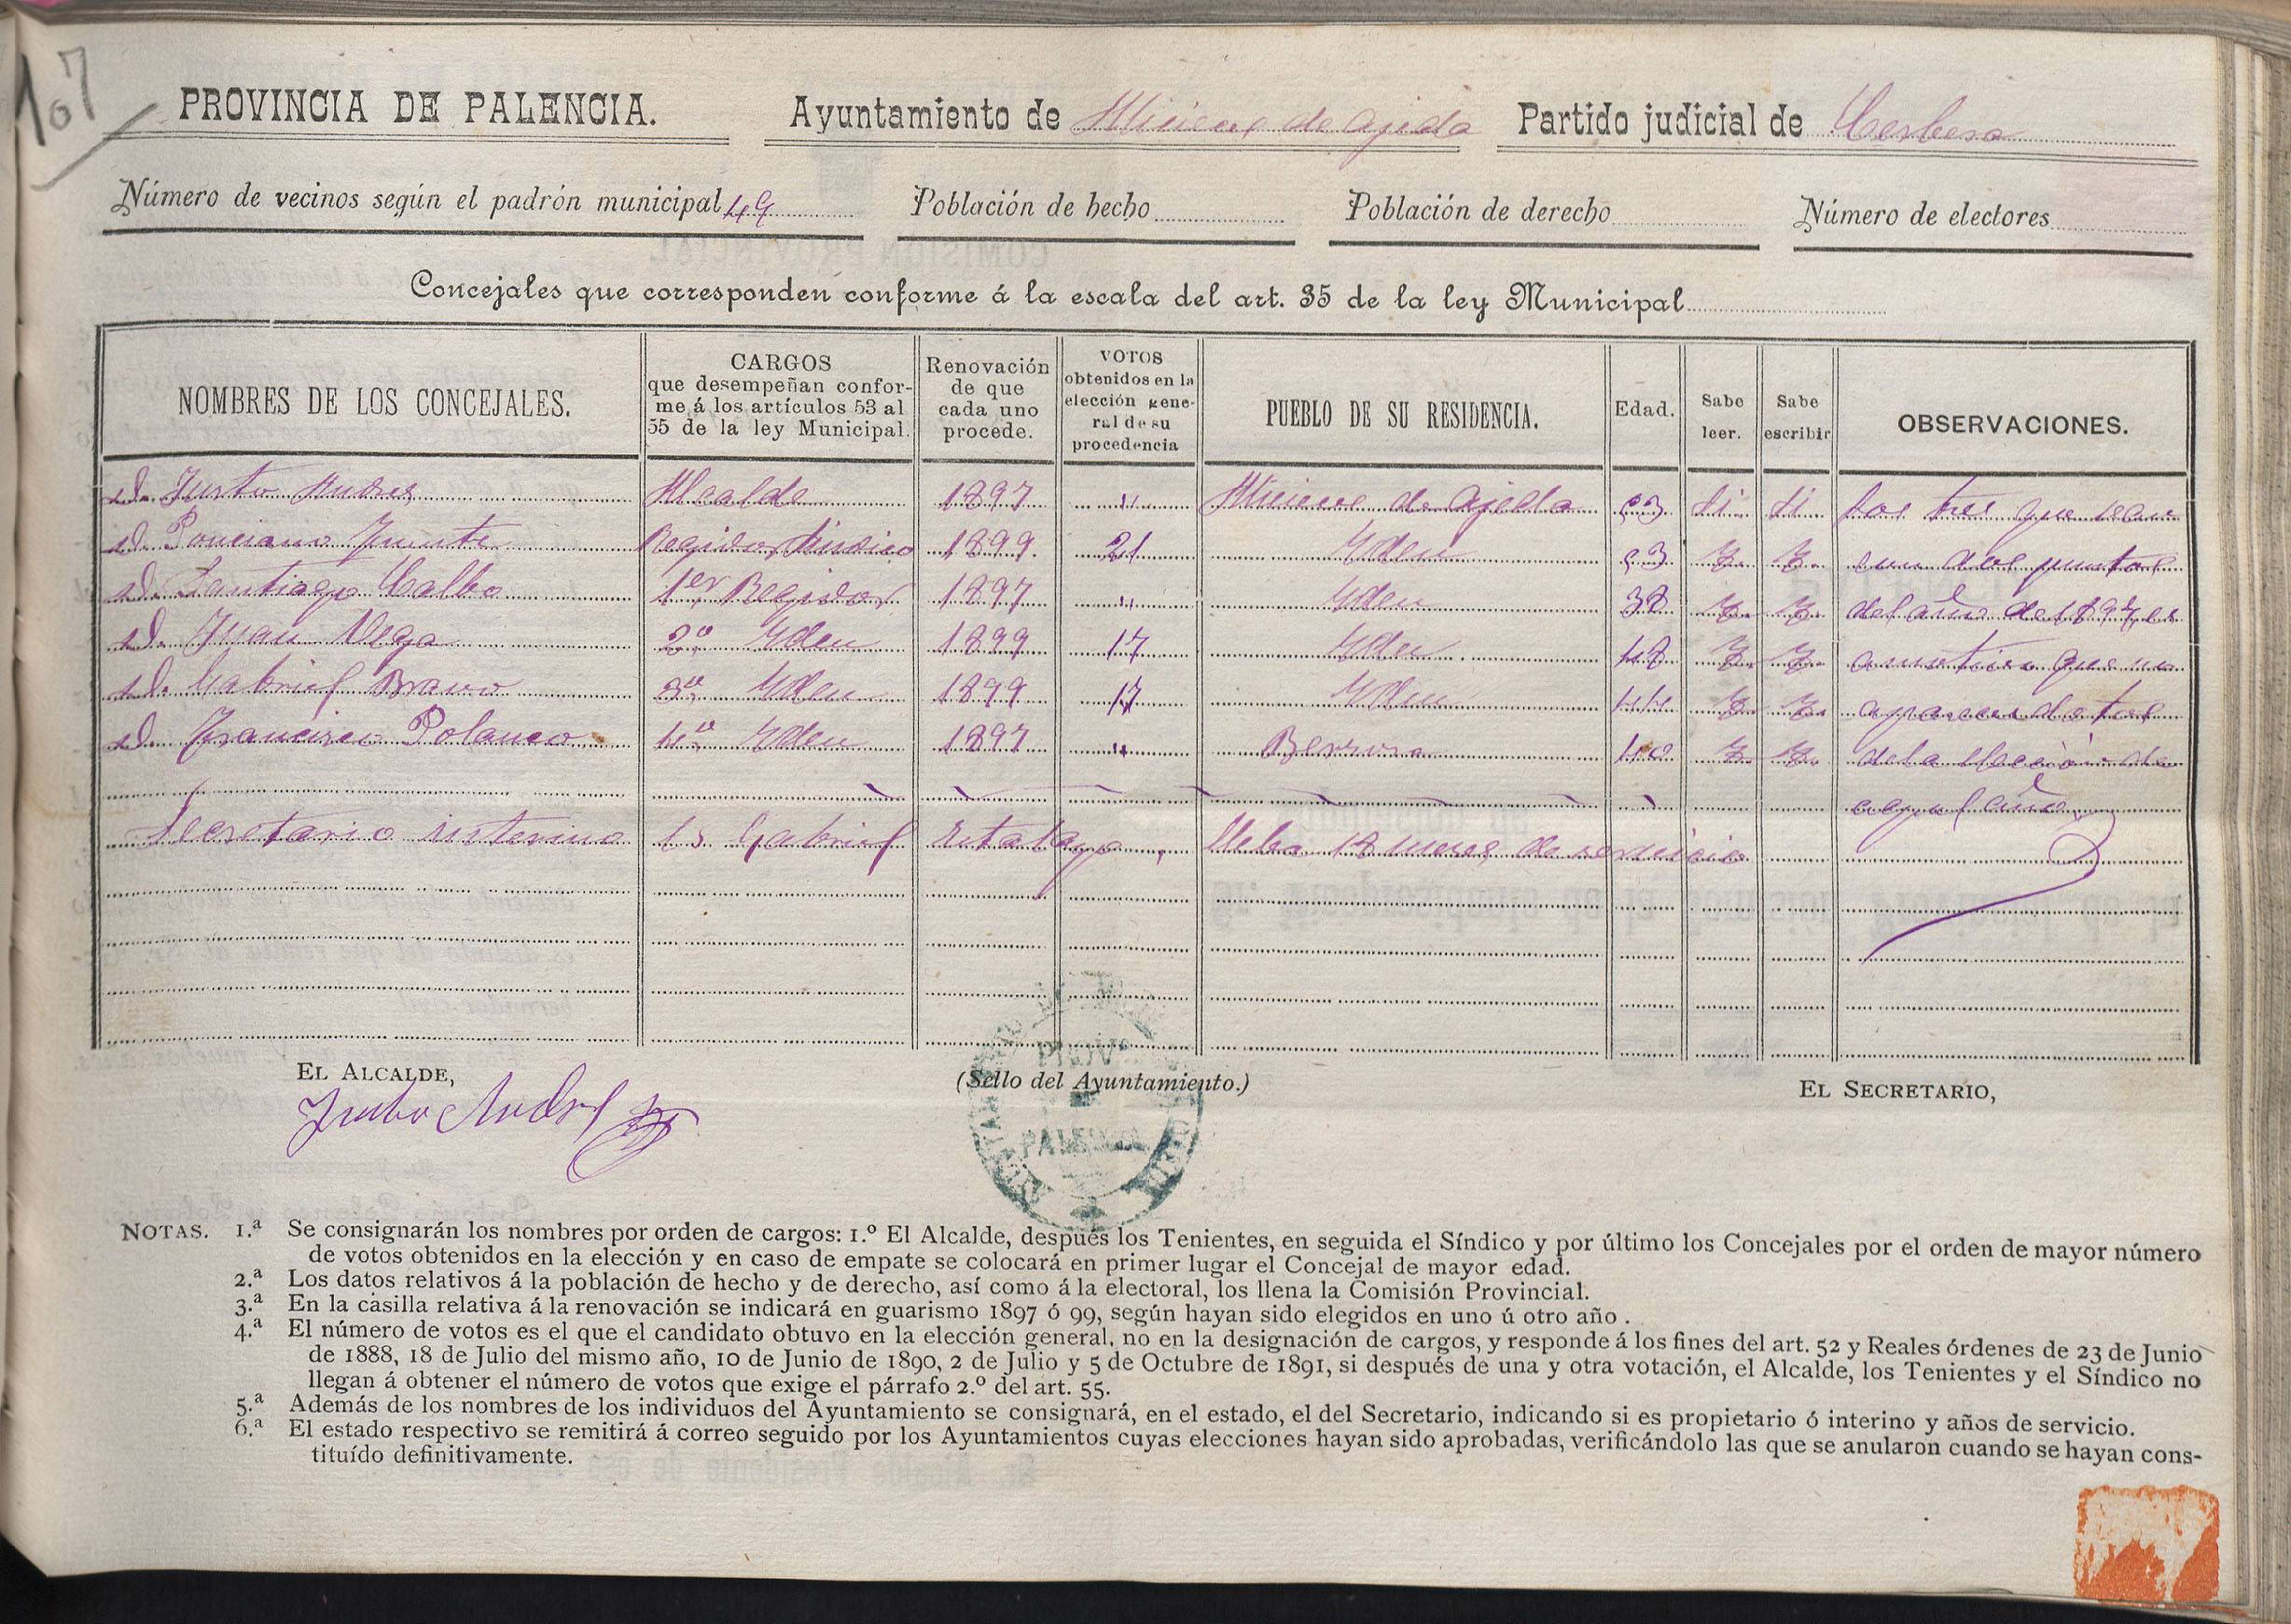 107
PROVINCIA DE PALENCIA. Ayuntamiento de Micieces de Ojeda Partido judicial de Cerbera
Número de vecinos según el padrón municipal 49 Población de hecho Población de derecho Número de electores
Concejales que corresponden conforme á la escala del art. 35 de la ley Municipal
NOMBRES DE LOS CONCEJALES.
CARGOS
que desempeñan confor-
me á los artículos 53 al
55 de la ley Municipal.
Renovación
de que
cada uno
procede.
VOTOS
obtenidos en la
elección gene-
ral de su
procedencia
PUEBLO DE SU RESIDENCIA.
Edad.
Sabe
leer.
Sabe
escribir
OBSERVACIONES.
D. Justo Andres Alcalde 1897 " Micieces de Ojeda 53 Si Si Los tres que bean
D. Ponciano Fuente Regidor Sindico 1899 21 Yden 53 Y. Y. con dos puntos
D. Santiago Calbo 1er Regidor 1897 " Yden 38 Y. Y. del año de 1897, es
D. Juan Vega 2º Yden 1899 17 Yden 48 Y. Y. a motivo que no
D. Gabriel Bravo 3º Yden 1899 17 Yden 44 Y. Y. aparecen datos
D. Francisco Polanco 4º Yden 1897 " Berzosa 40 Y. Y. de la eleccion de
aquel año
Secretario interino Gabriel lleba 18 meses de servicio
EL ALCALDE,
Justo Andres
(Sello del Ayuntamiento.)
PROVª
PALENCIA
EL SECRETARIO,
NOTAS. 1.ª Se consignarán los nombres por orden de cargos: 1.º El Alcalde, después los Tenientes, en seguida el Síndico y por último los Concejales por el orden de mayor número
de votos obtenidos en la elección y en caso de empate se colocará en primer lugar el Concejal de mayor edad.
2.ª Los datos relativos á la población de hecho y de derecho, así como á la electoral, los llena la Comisión Provincial.
3.ª En la casilla relativa á la renovación se indicará en guarismo 1897 ó 99, según hayan sido elegidos en uno ú otro año.
4.ª El número de votos es el que el candidato obtuvo en la elección general, no en la designación de cargos, y responde á los fines del art. 52 y Reales órdenes de 23 de Junio
de 1888, 18 de Julio del mismo año, 10 de Junio de 1890, 2 de Julio y 5 de Octubre de 1891, si después de una y otra votación, el Alcalde, los Tenientes y el Síndico no
llegan á obtener el número de votos que exige el párrafo 2.º del art. 55.
5.ª Además de los nombres de los individuos del Ayuntamiento se consignará, en el estado, el del Secretario, indicando si es propietario ó interino y años de servicio.
6.ª El estado respectivo se remitirá á correo seguido por los Ayuntamientos cuyas elecciones hayan sido aprobadas, verificándolo las que se anularon cuando se hayan cons-
tituído definitivamente.